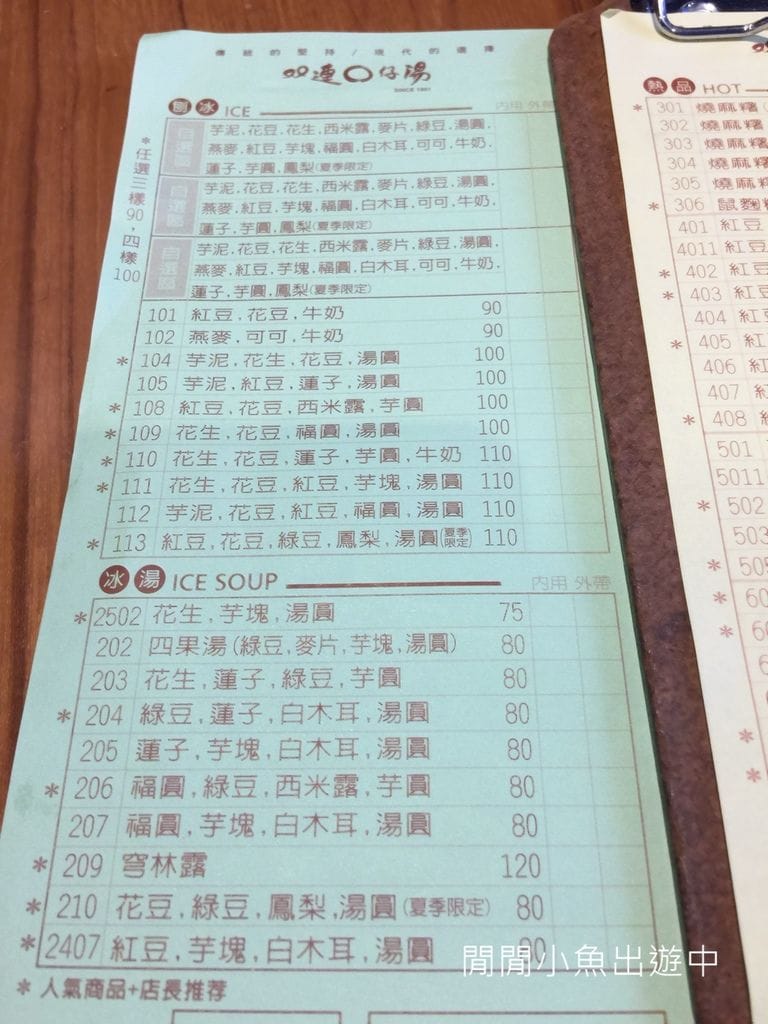 傳統的堅持/現代的選擇
双連〇仔湯
SINCE 1951
刨冰 ICE 內用 外帶
*任選三樣90,四樣100
自選區 芋泥.花豆.花生.西米露.麥片.綠豆.湯圓.
燕麥.紅豆.芋塊.福圓.白木耳.可可.牛奶.
蓮子.芋圓.鳳梨(夏季限定)
自選區 芋泥.花豆.花生.西米露.麥片.綠豆.湯圓.
燕麥.紅豆.芋塊.福圓.白木耳.可可.牛奶.
蓮子.芋圓.鳳梨(夏季限定)
自選區 芋泥.花豆.花生.西米露.麥片.綠豆.湯圓.
燕麥.紅豆.芋塊.福圓.白木耳.可可.牛奶.
蓮子.芋圓.鳳梨(夏季限定)
101 紅豆.花豆.牛奶 90
102 燕麥.可可.牛奶 90
*104 芋泥.花生.花豆.湯圓 100
105 芋泥.紅豆.蓮子.湯圓 100
*108 紅豆.花豆.西米露.芋圓 100
*109 花生.花豆.福圓.湯圓 100
*110 花生.花豆.蓮子.芋圓.牛奶 110
*111 花生.花豆.紅豆.芋塊.湯圓 110
112 芋泥.花豆.紅豆.福圓.湯圓 110
*113 紅豆.花豆.綠豆.鳳梨.湯圓(夏季限定) 110
冰湯 ICE SOUP 內用 外帶
*2502 花生.芋塊.湯圓 75
202 四果湯(綠豆.麥片.芋塊.湯圓) 80
203 花生.蓮子.綠豆.芋圓 80
*204 綠豆.蓮子.白木耳.湯圓 80
205 蓮子.芋塊.白木耳.湯圓 80
*206 福圓.綠豆.西米露.芋圓 80
207 福圓.芋塊.白木耳.湯圓 80
*209 穹林露 120
*210 花豆.綠豆.鳳梨.湯圓(夏季限定) 80
*2407 紅豆.芋塊.白木耳.湯圓
*人氣商品+店長推荐
熱品 HOT
*301 燒麻糬
302 燒麻糬
303 燒麻糬
304 燒麻糬
305 燒麻糬
*306 鼠麴
401 紅豆
4011 紅豆
*402 紅豆
*403 紅豆
404 紅
*405 紅
406 紅
407 紅
*408
501
5011
*502
503
閒閒小魚出遊中